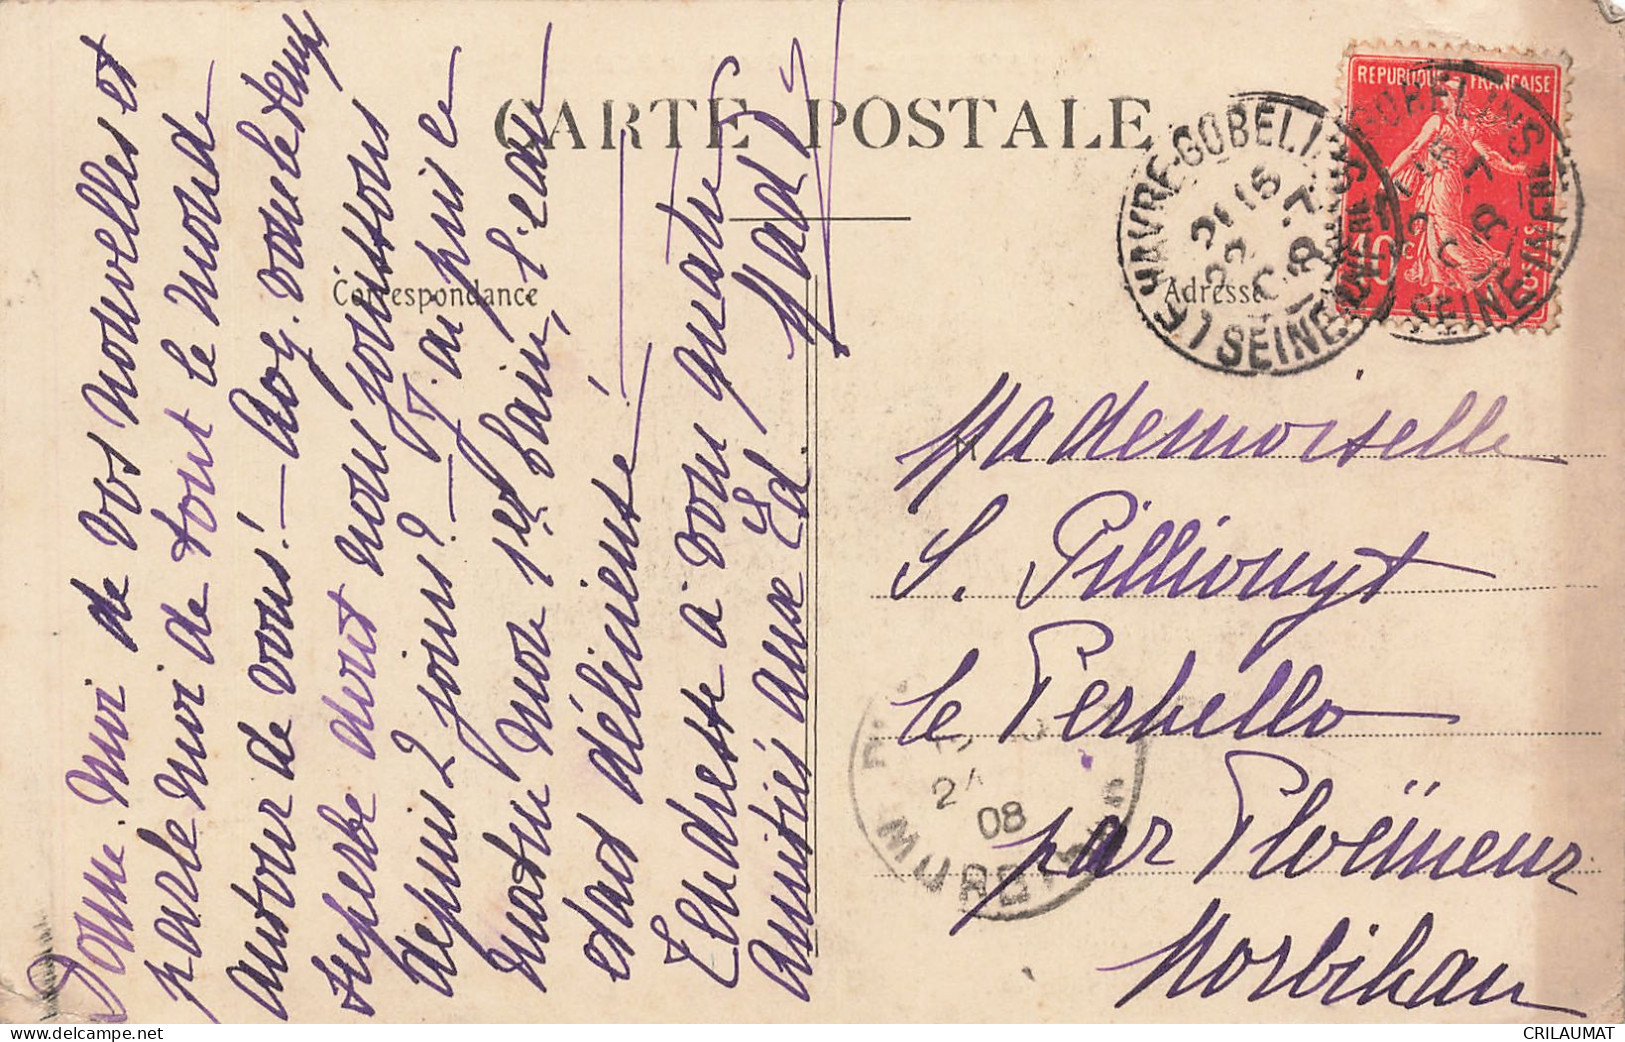 CARTE POSTALE
Correspondance
Adresse
RÉPUBLIQUE FRANÇAISE
10
LE HAVRE-GOBELINS
SEINE INFRE
24
08
MORBIHAN
Donne-moi de vos nouvelles et
parle moi de tout le monde
autour de vous! — Avez-vous le temps
superbe dont nous jouissons
depuis 2 jours? — J'ai pris ce
matin mon 1er bain, l'eau
était délicieuse!
Tendresse à vous quatre
amitiés aux Ed. Mad
M
Mademoiselle
S. Pillionyt
le Perhello
par Ploëmeur
Morbihan
CRILAUMAT